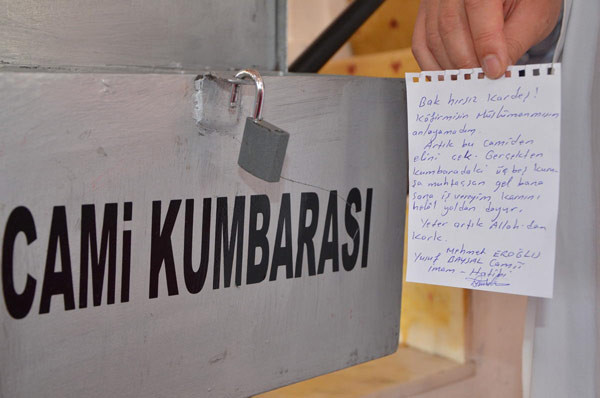 CAMİ KUMBARASI
Bak hırsız kardeş!
Kâfirmisin Müslümanmısın
anlayamadım.
Artık bu camiden
elini çek. Gerçekten
kumbaradaki üç beş kuru
şa muhtaçsan gel bana
sana iş vereyim karnını
helâl yoldan doyur.
Yeter artık Allah'dan
kork.
Mehmet EROĞLU
Yusuf BAYSAL Camii
imam - Hatibi